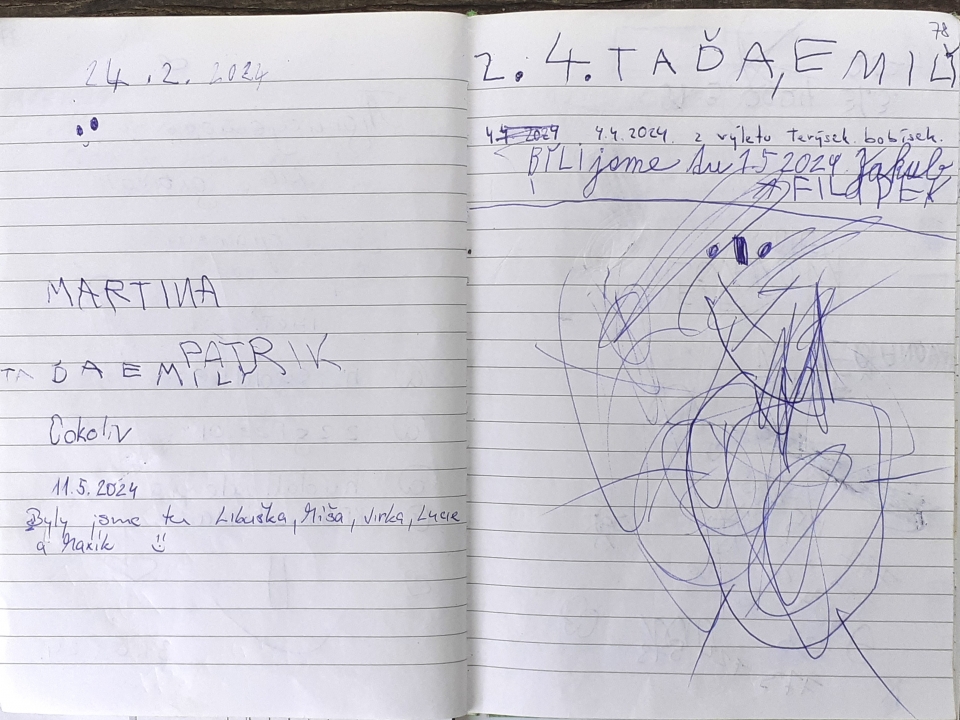 24.2.2024
MARTINA
PATRIK
TAĎA EMILY
Cokoliv
11.5.2024
Byly jsme tu Libuška, Míša, Jirka, Lucie
a Maxík
78
2.4. TAĎA, EMILY
4.4.2024 z výletu Terýsek. bobísek.
BYLI jsme tu 1 5 2024 Jakub
A FILÍPEK